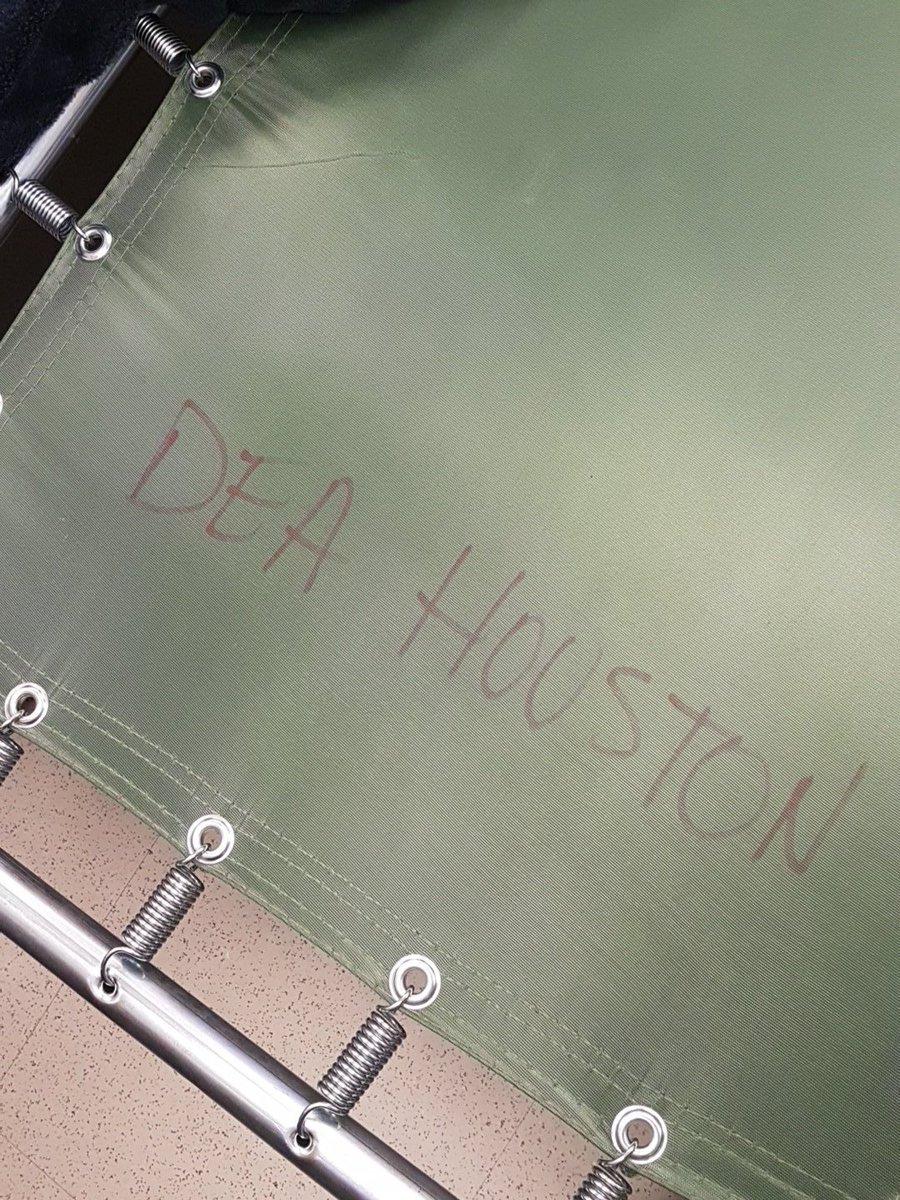 DEA HOUSTON